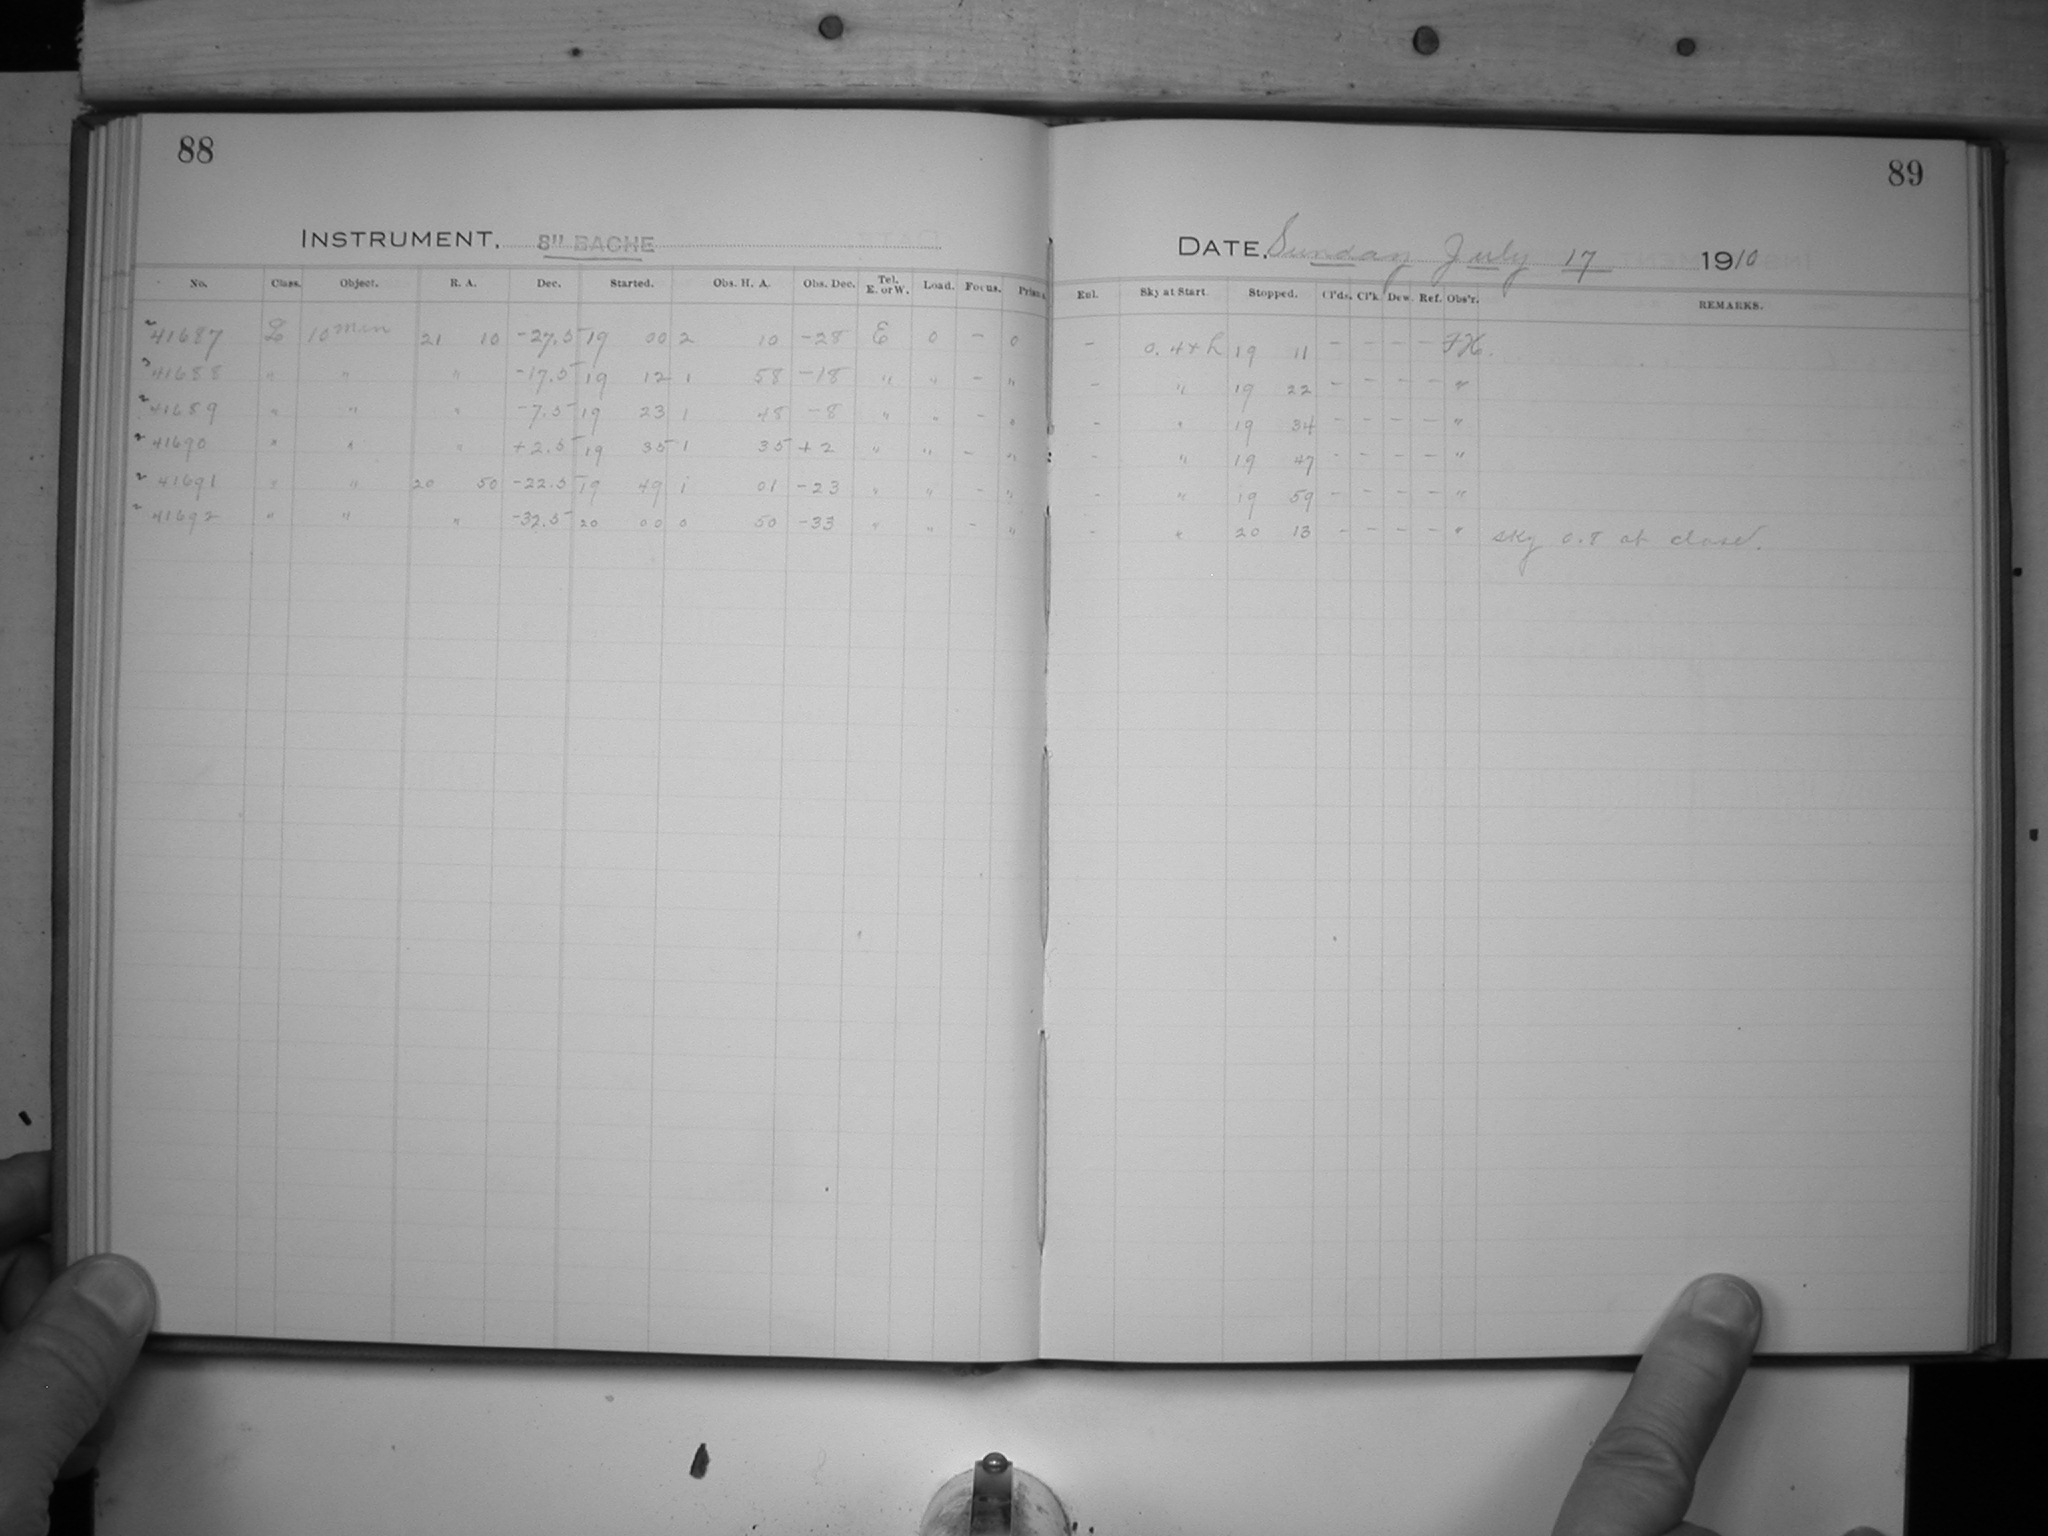 88
INSTRUMENT. 8" BACHE
No. Class. Object. R. A. Dec. Started. Obs. H. A. Obs. Dec. Tel. E. or W. Load. Focus. Prism
41687 L 10 min 21 10 -27.5 19 00 2 10 -28 E 0 - 0
41688 " " " -17.5 19 12 1 58 -18 " " - "
41689 " " " -7.5 19 23 1 48 -8 " " - "
41690 " " " +2.5 19 35 1 35 +2 " " - "
41691 " " 20 50 -22.5 19 49 1 01 -23 " " - "
41692 " " " -32.5 20 00 0 50 -33 " " - "
89
DATE. Sunday July 17 1910
Enl. Sky at Start. Stopped. Cl'ds. Cl'k. Dew. Ref. Obs'r. REMARKS.
- 19 11 - - - -
- " 19 22 - - - - "
- " 19 34 - - - - "
- " 19 47 - - - - "
- " 19 59 - - - - "
- " 20 13 - - - - " sky 0.8 at close.